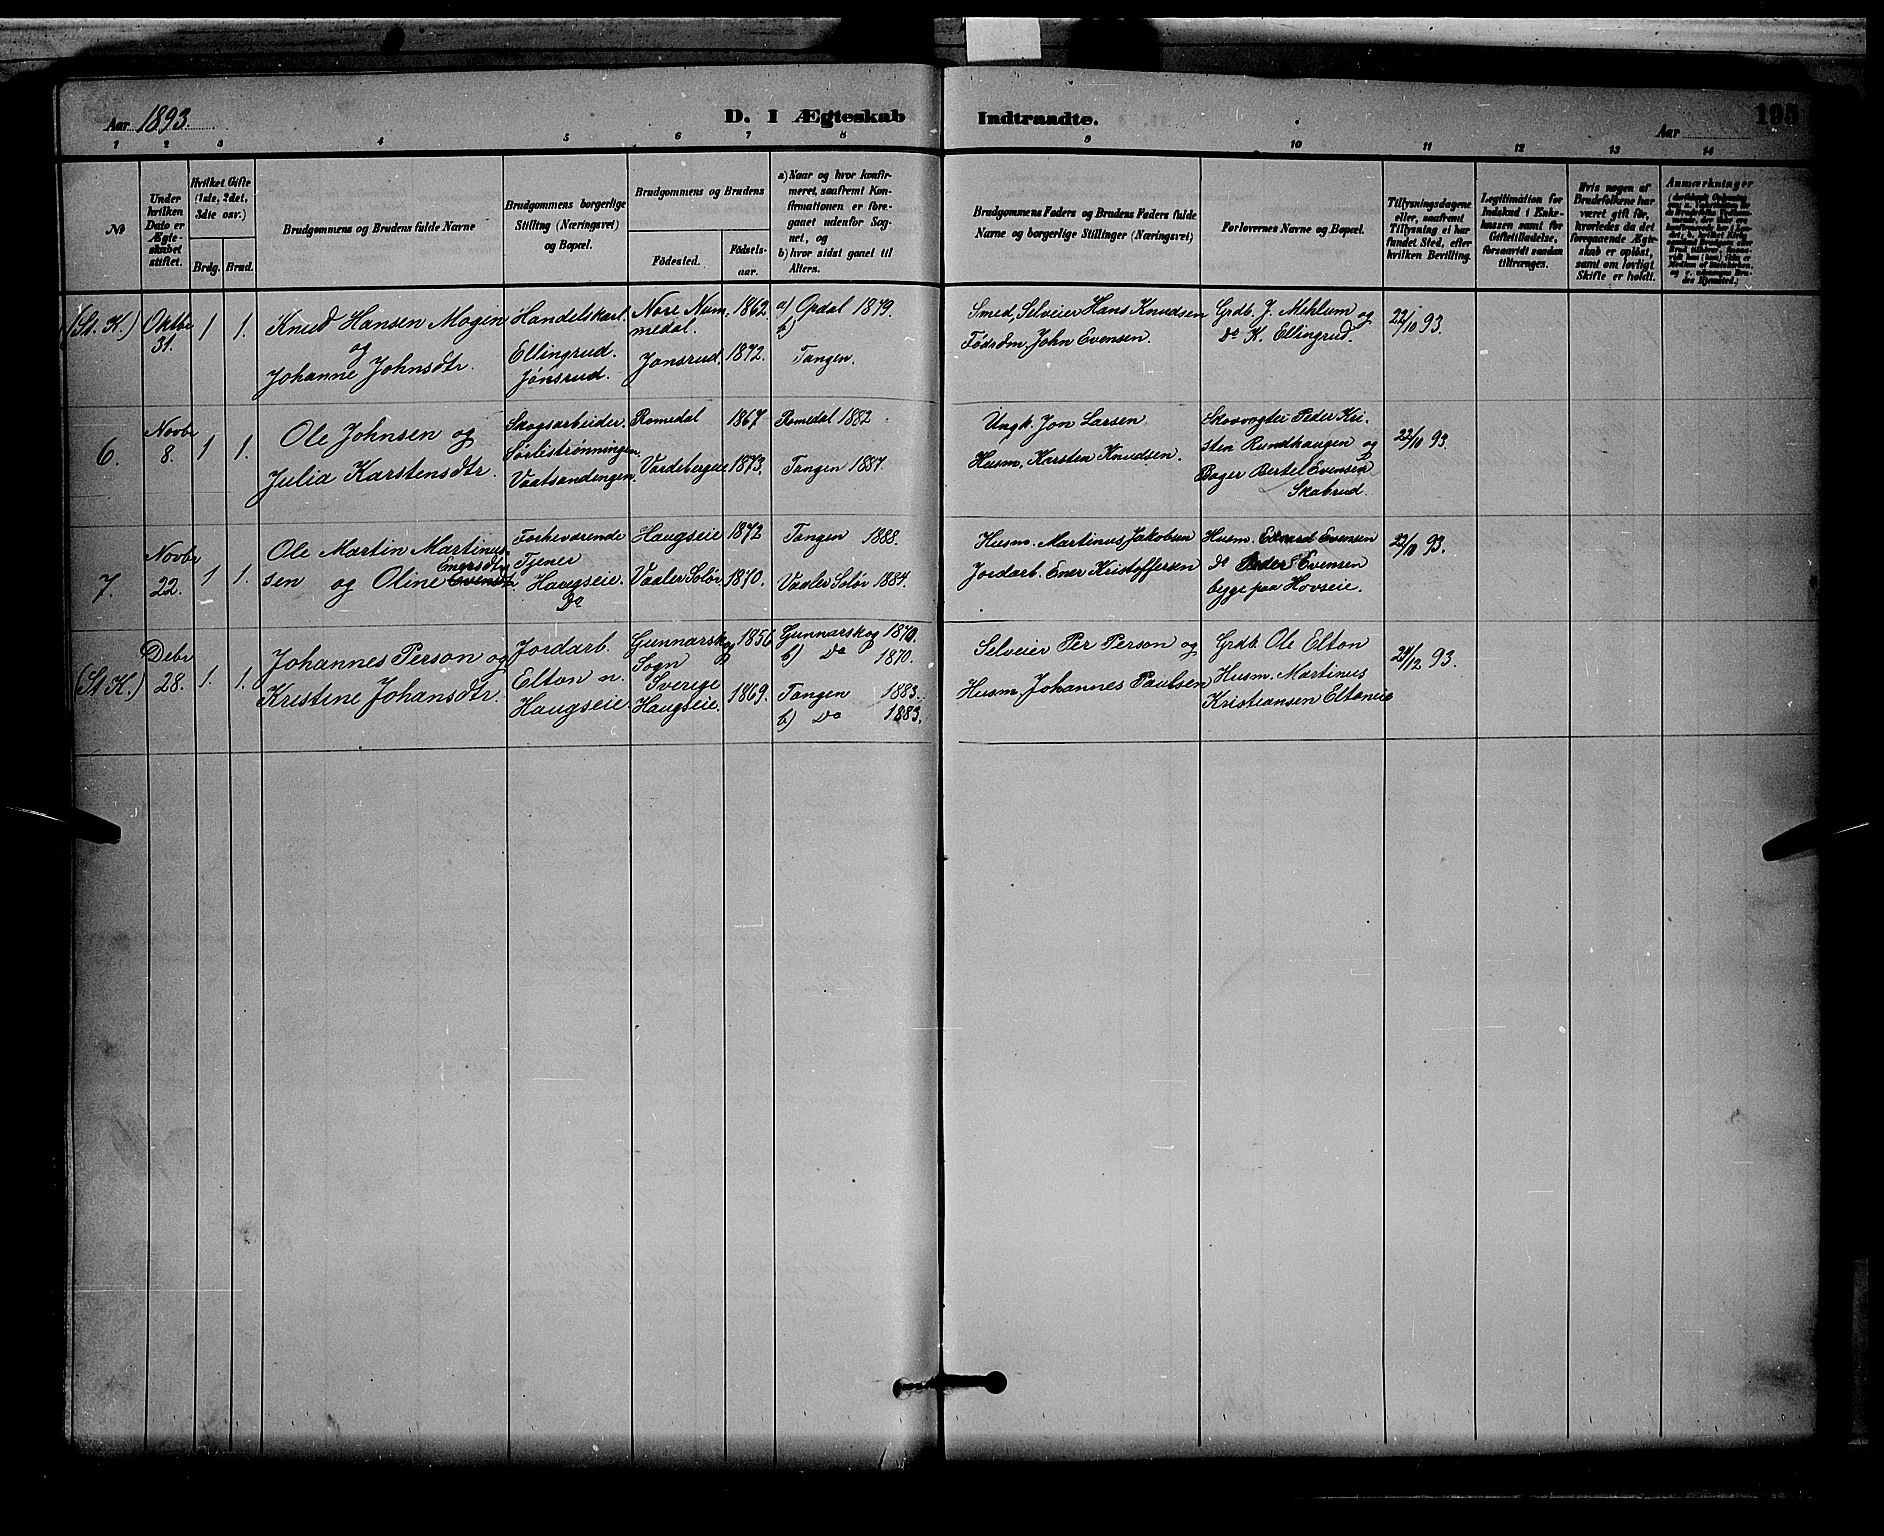 Aar 1893.
D. I Ægteskab
Indtraadte.
195
Aar
1 2 3 4 5 6 7 8 9 10 11 12 13 14
№
Under hvilken Dato er Ægteskabet stiftet.
Hvilket Gifte (1ste, 2det, 3die osv.)
Brdg. Brud.
Brudgommens og Brudens fulde Navne
Brudgommens borgerlige Stilling (Næringsvei) og Bopæl.
Brudgommens og Brudens
Födested.
Födselsaar.
a) Naar og hvor konfirmeret, saafremt Konfirmationen er foregaaet udenfor Sognet, og
b) hvor sidst gaaet til Alters.
Brudgommens Faders og Brudens Faders fulde Navne og borgerlige Stillinger (Næringsvei)
Forlovernes Navne og Bopæl.
Tillysningsdagene eller, saafremt Tillysning ei har fundet Sted, efter hvilken Bevilling.
Legitimation for Indskud i Enkekassen samt for Giftetilladelse, forsaavidt saadan tiltrænges.
Hvis nogen af Brudefolkene har været gift för, hvorledes da det foregaaende Ægteskab er oplöst, samt om lovligt Skifte er holdt.
Anmærkninger
(St. K.) Oktbr 31. 1 1. Knud Hansen Mogen Handelskarl Nore Num 1862 a) Opdal 1879. Smed, Selveier Hans Knudsen Grdb. J. Mehlum og 22/10 93.
og Ellingrud. medal. b) Födrdm, John Evensen. Do K. Ellingrud.
Johanne Johnsdtr. Jönsrud. Jonsrud. 1872. Tangen.
6. Novbr 8. 1 1. Ole Johnsen og Skogsarbeider. Romedal 1867 Romedal 1882 Ungk. Jon Larsen Skovvogter Peder Kri- 22/10 93.
Sørlistrønningen sten Rundhaugen og
Julia Karstensdtr. Vaatsandengen. Vardebergeie 1873. Tangen 1887. Husm. Karsten Knudsen. Bager Bertel Evensen
Skabrud.
7. Novbr 22. 1 1. Ole Martin Martinus- Forheværende Haugseie 1872 Tangen 1888. Husm. Martinus Jakobsen Husm. Edvard Evensen 22/10 93.
Enersdtr Tjener
sen og Oline Evensdtr. Haugseie. Vaaler Solør 1870. Vaaler Solør 1884. Jordarb. Ener Kristoffersen Do Peder Evensen
Do begge paa Hovseie.
(St K.) Debr 28. 1. 1. Johannes Person og Jordarb. Gunnarskog 1856 Gunnarskog 1870. Selveier Per Person og Grdb. Ole Elton 24/12 93.
Elton n. Sogn b) Do 1870. Husm. Martinus
Sverige
Kristine Johansdtr. Haugseie. Haugseie. 1869. Tangen 1883. Husm, Johannes Paulsen Kristiansen Eltoneie
b) Do 1883.